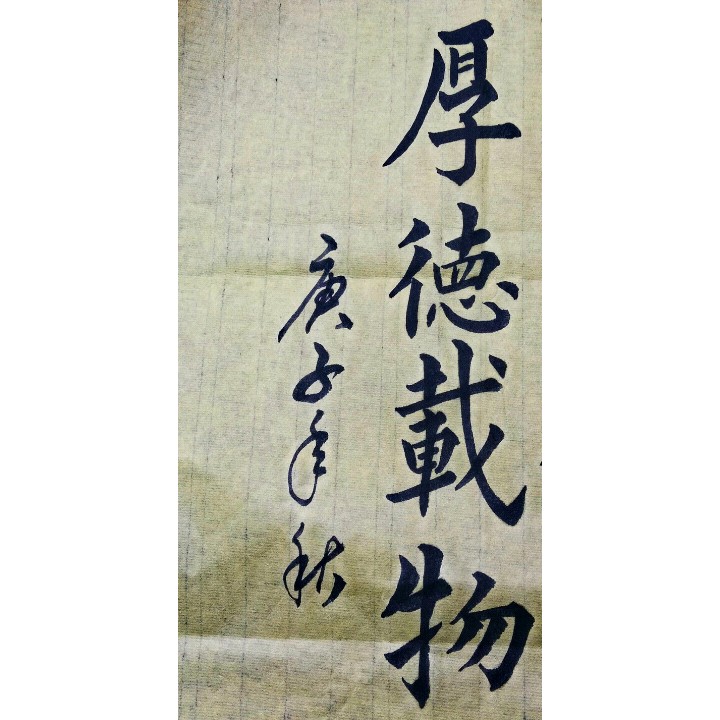 厚德載物
庚子年秋